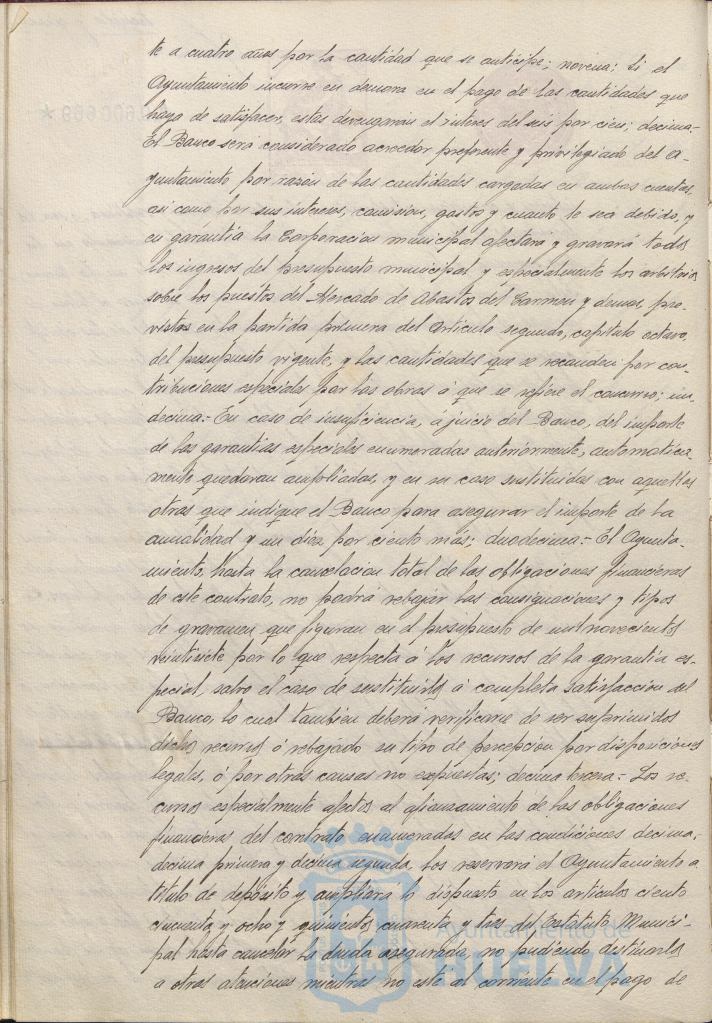 te a cuatro años por la cantidad que se anticipe; novena: Si el
Ayuntamiento incurre en demora en el pago de las cantidades que
haya de satisfacer, estas devengaran el interes del seis por cien; decima-
El Banco será considerado acreedor preferente y privilegiado del A-
yuntamiento por razón de las cantidades cargadas en ambas cuentas,
asi como por sus intereses, comision, gastos y cuanto le sea debido, y
en garantía la Corporacion municipal afectará y gravará todos
los ingresos del presupuesto municipal y especialmente los arbitrios
sobre los puestos del Mercado de Abastos del Carmen y demas, pre-
vistos en la partida primera del Articulo segundo, capitulo octavo,
del presupuesto vigente, y las cantidades que se recauden por con-
tribuciones especiales por las obras á que se refiere el concurso; un-
decima.- En caso de insuficiencia, á juicio del Banco, del importe
de las garantias especiales enumeradas anteriormente, automatica
mente quedaran ampliadas, y en su caso sustituidas con aquellas
otras que indique el Banco para asegurar el importe de la
anualidad y un diez por ciento más; duodecima.- El Ayunta-
miento, hasta la cancelacion total de las obligaciones financieras
de este contrato, no podrá rebajar las consignaciones y tipos
de gravamen que figuran en el presupuesto de mil novecientos
veintisiete por lo que respecta á los recursos de la garantía es-
pecial, salvo el caso de sustituirlos á completa satisfaccion del
Banco, lo cual tambien deberá verificarse de ser suprimidos
dichos recursos ó rebajado su tipo de percepcion por disposiciones
legales, ó por otras causas no expuestas; decima tercera.- Los re-
cursos especialmente afectos al afianzamiento de las obligaciones
financieras del contrato enumeradas en las condiciones decima,
decima primera y decima segunda, los reservará el Ayuntamiento a
titulo de depósito y ampliará lo dispuesto en los articulos ciento
cincuenta y ocho y quinientos cuarenta y tres del Estatuto Munici-
pal hasta cancelar la deuda asegurada, no pudiendo destinarlos
a otras atenciones mientras no esté al corriente en el pago de
Ayuntamiento de
HUELVA